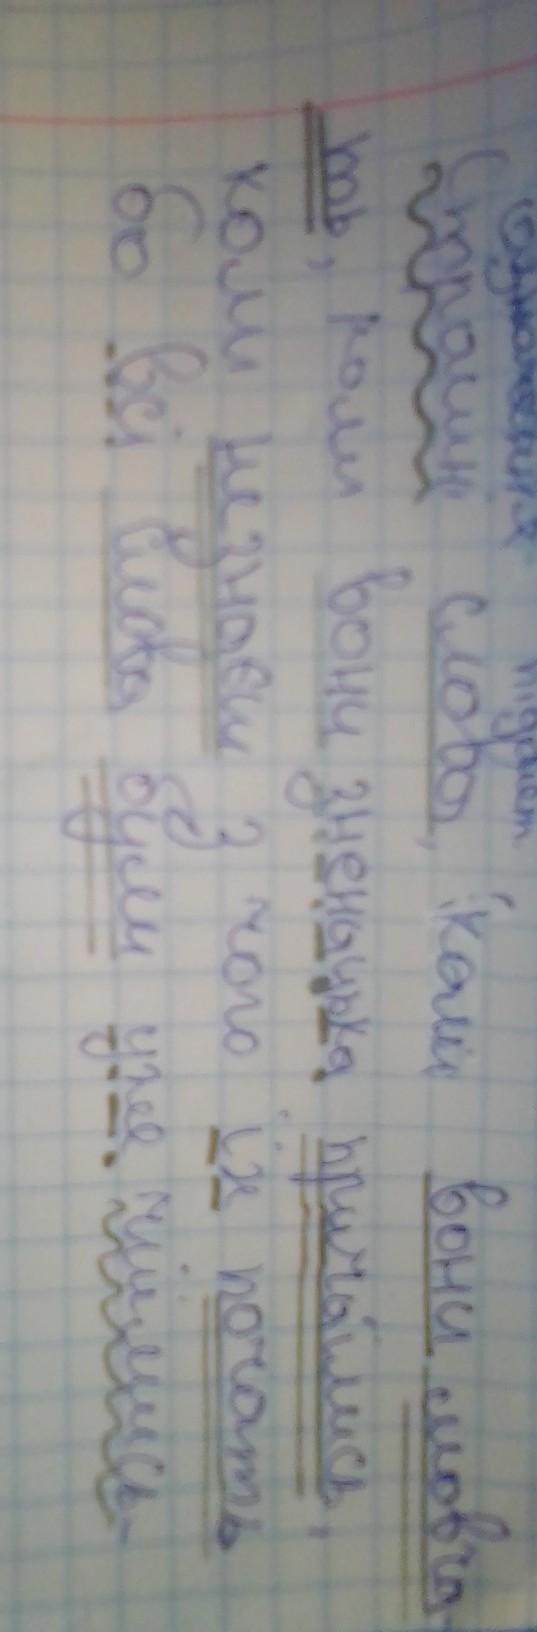 означення підмет
Страшні слова, коли вони мовча
ть, коли вони зненацька причаїлись,
коли не знаєш з чого їх почать
бо всі слова були уже чиїмись.